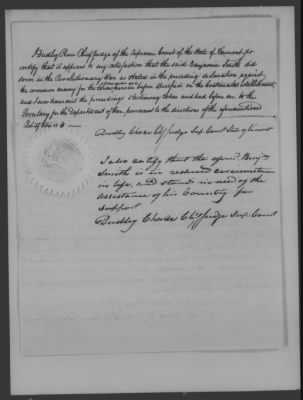 I Dudley Chase Chief Judge of the Supreme Court of the State of Vermont, do
certify that it appears to my satisfaction that the said Benjamin Smith did
serve in the Revolutionary War as stated in the preceding declaration against
the common enemy for the term herein before specified on the Continental establishment,
and I now transmit the proceedings & testimony taken and had before me to the
Secretary for the department of War pursuant to the directions of the
Dudley Chase Chf Judge Sup Court State of Vermont
I also certify that the aforesd. Benjn.
Smith is in reduced circumstances
in life, and stands in need of the
assistance of his Country for
support
Dudley Chase Chf Judge Sup. Court